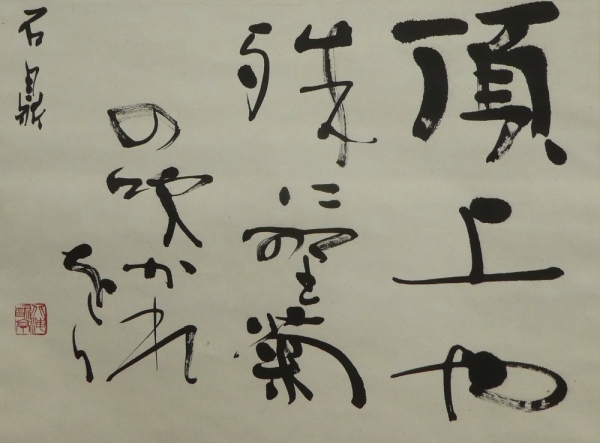 頂上や
殊に野菊
の吹かれ
をり
石鼎